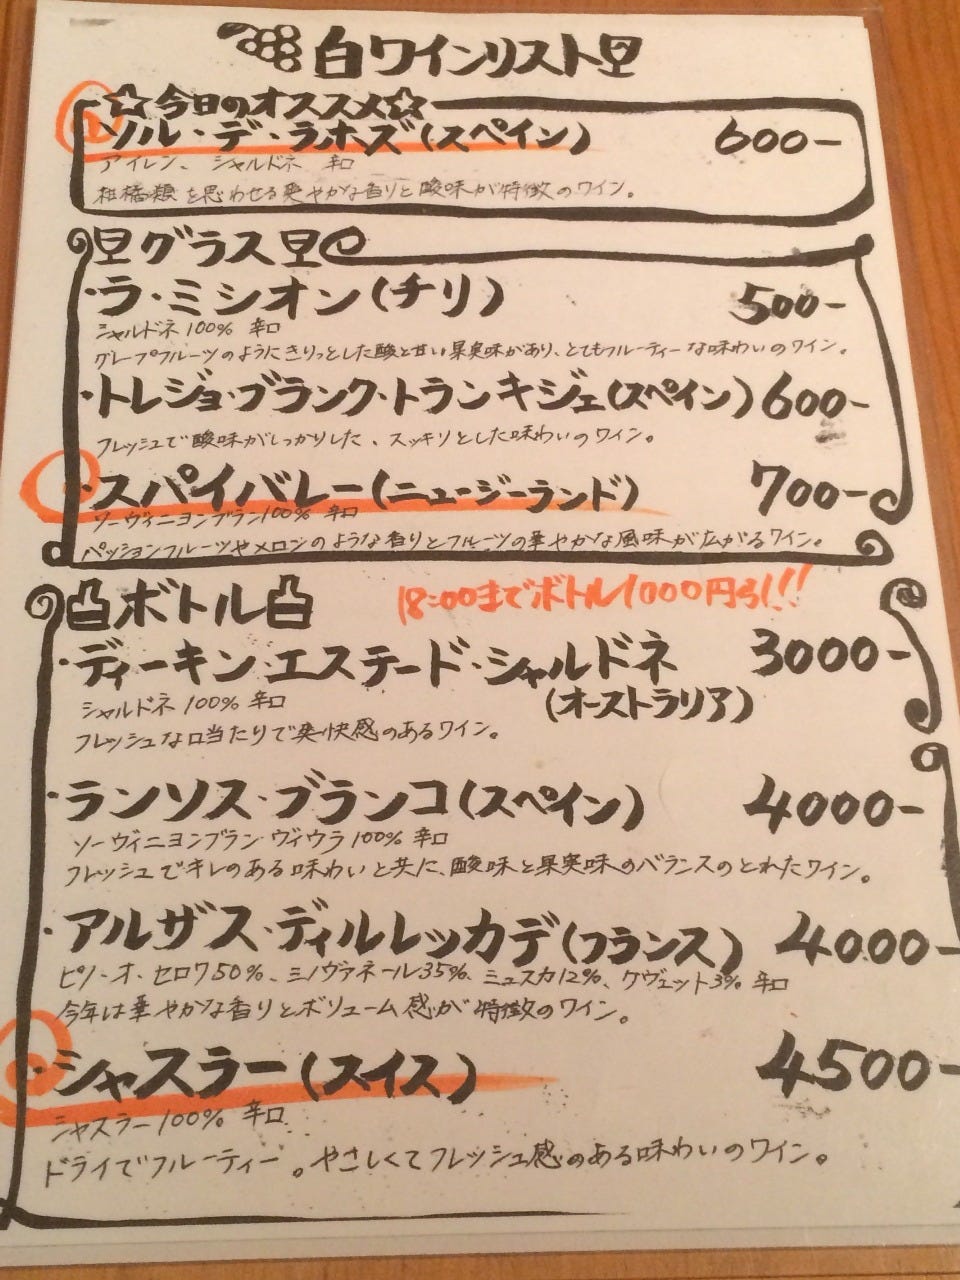 白ワインリスト
☆今日のオススメ☆
ソル・デ・ラホズ(スペイン) 600-
アイレン、シャルドネ 辛口
柑橘類を思わせる爽やかな香りと酸味が特徴のワイン。
グラス
・ラ・ミシオン(チリ) 500-
シャルドネ100% 辛口
グレープフルーツのようにきりっとした酸と甘い果実味があり、とてもフルーティーな味わいのワイン。
・トレジョ・ブランク・トランキジェ(スペイン) 600-
フレッシュで酸味がしっかりした、スッキリとした味わいのワイン。
・スパイバレー(ニュージーランド) 700-
ソーヴィニヨンブラン100% 辛口
パッションフルーツやメロンのような香りとフルーツの華やかな風味が広がるワイン。
凸ボトル凸 18:00までボトル1000円引!!
・ディーキン・エステード・シャルドネ 3000-
(オーストラリア)
シャルドネ100% 辛口
フレッシュな口当たりで爽快感のあるワイン。
・ランソス・ブランコ(スペイン) 4000-
ソーヴィニヨンブラン・ヴィウラ100% 辛口
フレッシュでキレのある味わいと共に、酸味と果実味のバランスのとれたワイン。
・アルザス・ディルレッカデ(フランス) 4000-
ピノ・オ・セロワ50%、ミノヴァネール35%、ミュスカ12%、クヴェット3% 辛口
今年は華やかな香りとボリューム感が特徴のワイン。
・シャスラー(スイス) 4500-
シャスラー100% 辛口
ドライでフルーティー。やさしくてフレッシュ感のある味わいのワイン。